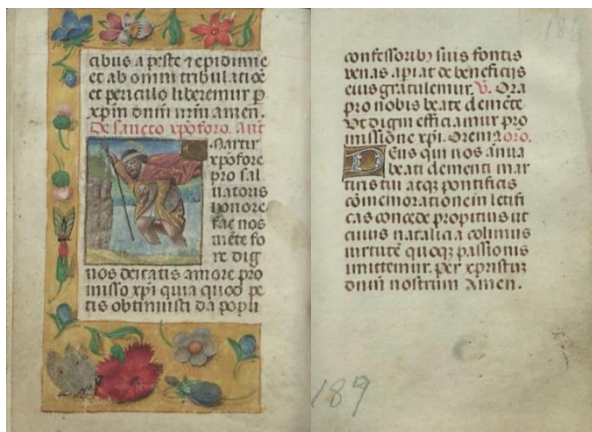 cibus a peste ⁊ epidimie
et ab omni tribulatiōe
et periculo liberemur p
xp̄m dn̄m nr̄m amen.
De sancto xp̄oforo. an̄t
Martir
xpofore
pro sal
uatoris
honore
fac nos
mēte fo
re dig
nos deitatis amore pro
misso xp̄i quia quod pe
tis obtinuisti da popli
186
confessoribꝫ suis fontis
venas apiat de beneficijs
eius gratulemur. V. Ora
pro nobis beate clemēte
Vt digni efficiamur pro
missiōne xp̄i. Oremꝰ oro.
Deus qui nos ānua
beati clementi mar
tiris tui atqꝫ pontificis
cōmemoratione letifi
cas concede propitius ut
cuius natalicia colimus
virtutē quoqꝫ passionis
imittemur. per xpristū
dn̄m nostrum Amen.
189